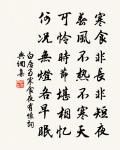 寒食非長非短夜
春風不熱不寒天
可怜時節堪相憶
何況無燈各早眠
白居易寒食夜有懷詞
典詞集